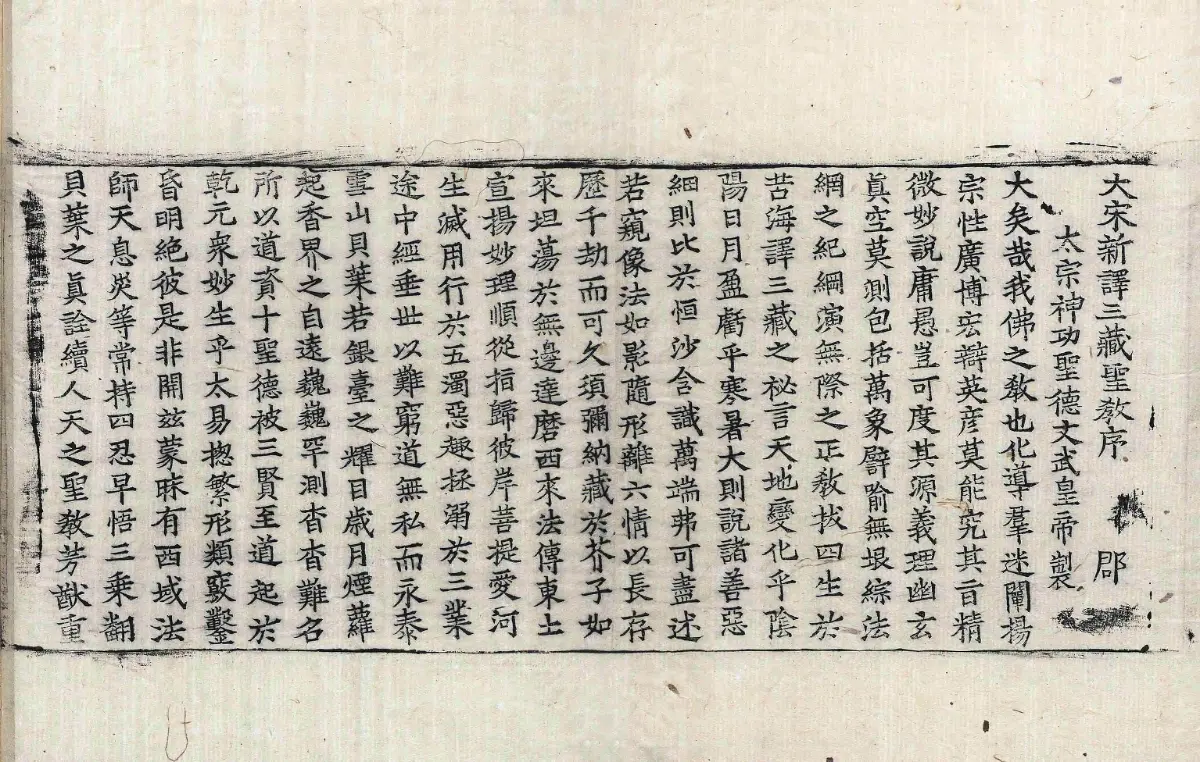 大宋新譯三藏聖教序 郡
太宗神功聖德文武皇帝製
大矣哉我佛之教也化導羣迷闡揚
宗性廣博宏辯英彥莫能究其旨精
微妙說庸愚豈可度其源義理幽玄
眞空莫測包括萬象譬喻無垠綜法
網之紀綱演無際之正教拔四生於
苦海譯三藏之祕言天地變化乎陰
陽日月盈虧乎寒暑大則說諸善惡
細則比於恒沙含識萬端弗可盡述
若窺像法如影隨形離六情以長存
歷千劫而可久須彌納藏於芥子如
來坦蕩於無邊達磨西來法傳東土
宣揚妙理順從指歸彼岸菩提愛河
生滅用行於五濁惡趣拯溺於三業
途中經垂世以難窮道無私而永泰
雪山貝葉若銀臺之耀目歲月煙蘿
起香界之自遠巍巍罕測杳杳難名
所以道資十聖德被三賢至道起於
乾元衆妙生乎太易揔繁形類竅鑿
昏明絕彼是非開兹蒙昧有西域法
師天息災等常持四忍早悟三乘翻
貝葉之眞詮續人天之聖教芳猷重